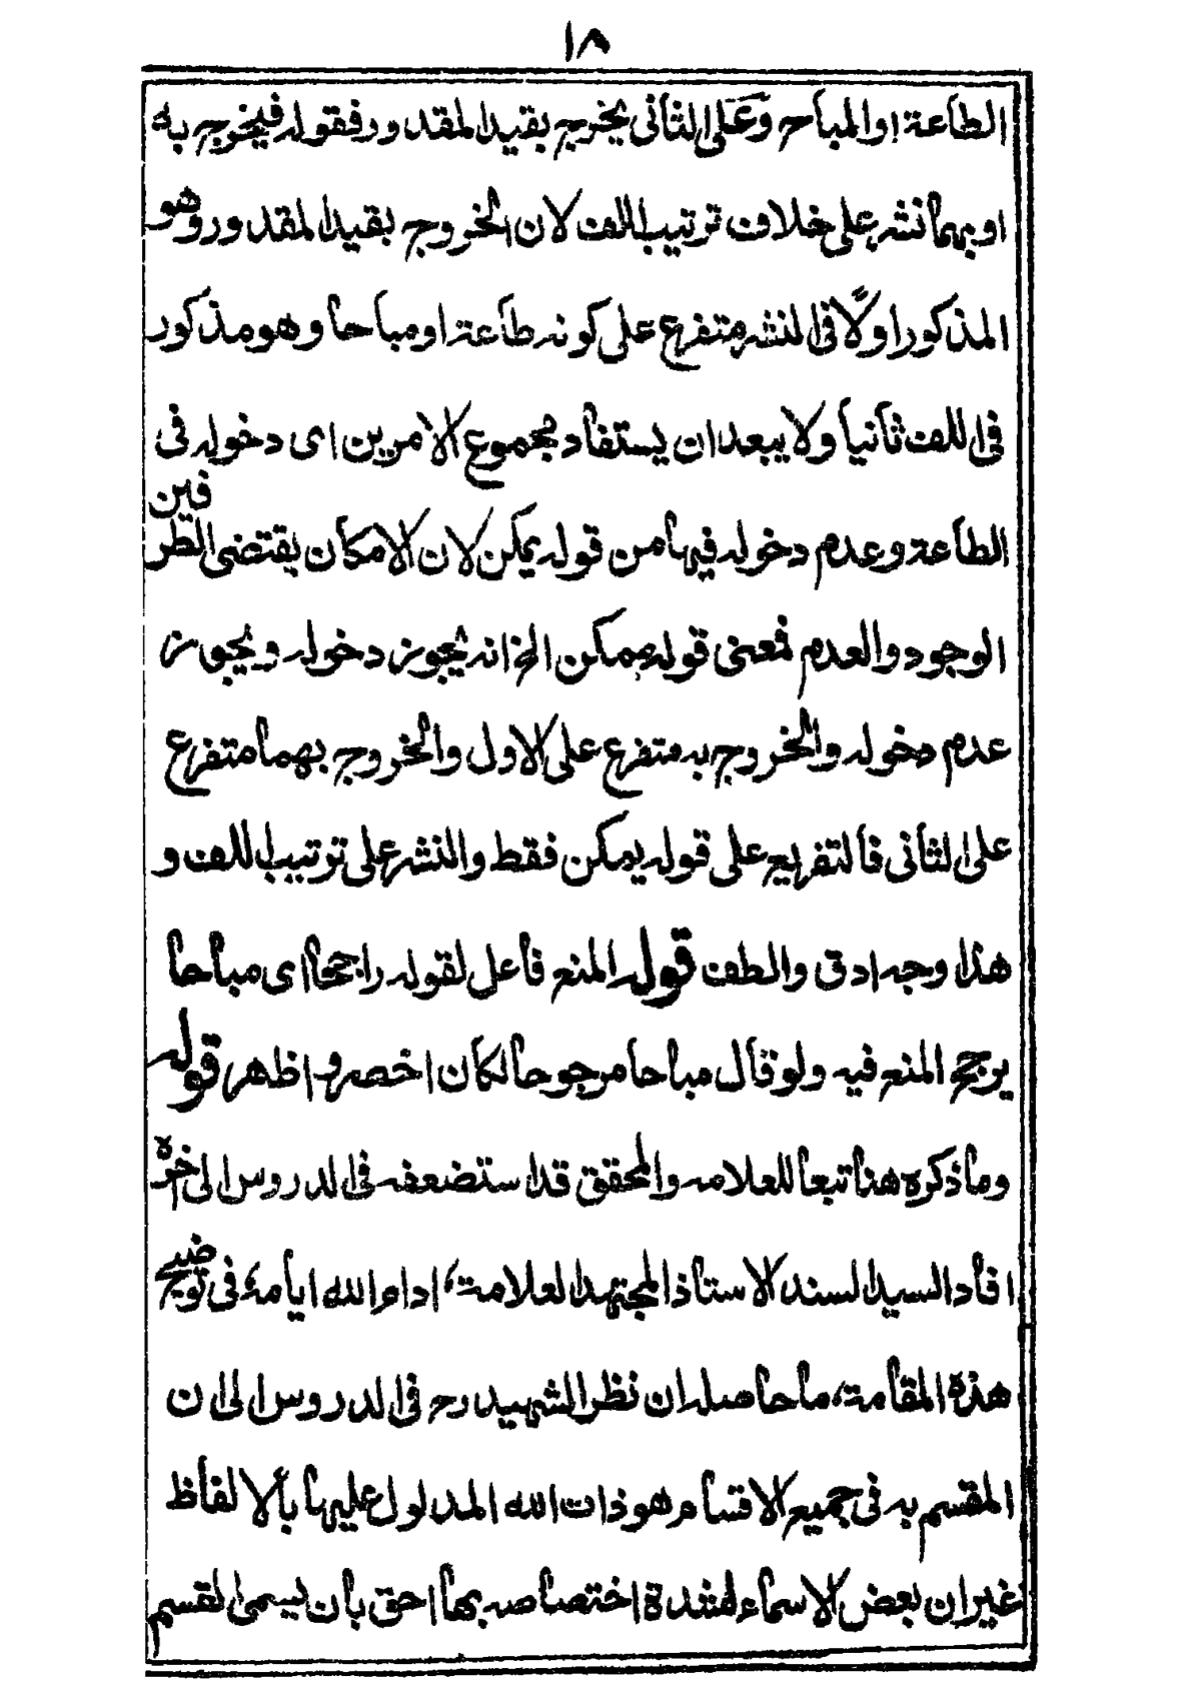 ١٨
الطاعة او المباح وعلى الثانى يخرج بقيد المقدور فقوله فيخرج به
او بهما نشر على خلاف ترتيب اللف لان الخروج بقيد المقدور وهو
المذكور اولًا فى النشر متفرع على كونه طاعة او مباحا وهو مذكور
فى اللف ثانيا ولا يبعد ان يستفاد مجموع الامرين اى دخوله فى
الطاعة وعدم دخوله فيها من قوله يمكن لان الامكان يقتضى الطرفين
الوجود والعدم فمعنى قوله يمكن الخ انه يجوز دخوله ويجوز
عدم دخوله والخروج به متفرع على الاول والخروج بهما متفرع
على الثانى فالتفريع على قوله يمكن فقط والنشر على ترتيب اللف و
هذا وجه ادق والطف قوله المنع فاعل لقوله راجحا اى مباحا
يرجح المنع فيه ولو قال مباحا مرجوحا لكان اخصر واظهر قوله
وما ذكره هنا تبعا للعلامه والمحقق قد استضعفه فى الدروس الى اخره
افاد السيد السند الاستاذ المجتهد العلامة، ادام الله ايامه، فى توضيح
هذه المقامة، ما حاصله ان نظر الشهيد رح فى الدروس الى ان
المقسم به فى جميع الاقسام هو ذات الله المدلول عليها بالالفاظ
غير ان بعض الاسماء لشدة اختصاصه بها احق بان يسمى القسم